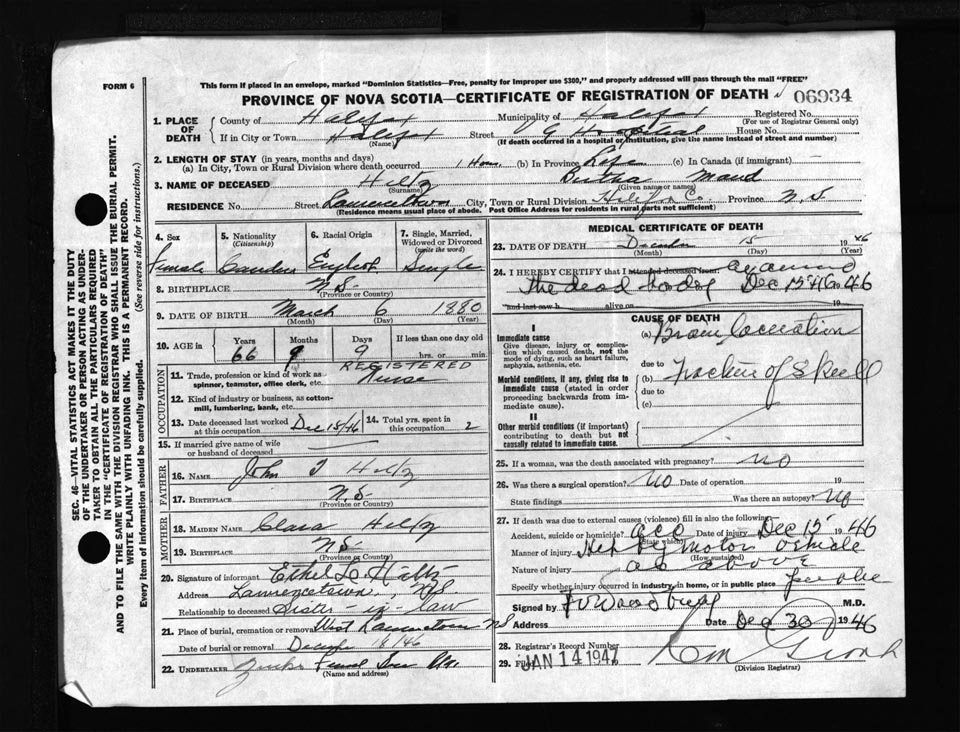 FORM 6
This form if placed in an envelope, marked "Dominion Statistics—Free, penalty for improper use $300," and properly addressed will pass through the mail "FREE"
PROVINCE OF NOVA SCOTIA—CERTIFICATE OF REGISTRATION OF DEATH 06934
1. PLACE OF DEATH County of Halifax Municipality of Halifax Registered No.
(For use of Registrar General only)
If in City or Town Halifax Street G Hospital House No.
(Name) (If death occurred in a hospital or institution, give the name instead of street and number)
2. LENGTH OF STAY (in years, months and days)
(a) In City, Town or Rural Division where death occurred 1 Hour (b) In Province Life (c) In Canada (if immigrant) —
3. NAME OF DECEASED Hiltz Bertha Maud
(Surname) (Given name or names)
RESIDENCE No. Street Lawrencetown City, Town or Rural Division Halifax Co. Province N.S
(Residence means usual place of abode. Post Office Address for residents in rural parts not sufficient)
4. Sex 5. Nationality (Citizenship) 6. Racial Origin 7. Single, Married, Widowed or Divorced (write the word)
Female Canadian English Single
8. BIRTHPLACE N.S.
(Province or Country)
9. DATE OF BIRTH March 6 1880
(Month) (Day) (Year)
10. AGE in Years Months Days If less than one day
66 9 9 hrs. or min.
OCCUPATION
11. Trade, profession or kind of work as spinner, teamster, office clerk, etc. REGISTERED Nurse
12. Kind of industry or business, as cotton-mill, lumbering, bank, etc.
13. Date deceased last worked at this occupation Dec 15/46 14. Total yrs. spent in this occupation 2
15. If married give name of wife or husband of deceased
FATHER
16. NAME John T Hiltz
17. BIRTHPLACE N.S.
(Province or Country)
MOTHER
18. MAIDEN NAME Clara Hiltz
19. BIRTHPLACE N.S.
(Province or Country)
20. Signature of informant Ethel L. Hiltz
Address Lawrencetown, N.S.
Relationship to deceased Sister-in-law
21. Place of burial, cremation or removal West Lawrencetown NS
Date of burial or removal 18/46
22. UNDERTAKER
(Name and address)
MEDICAL CERTIFICATE OF DEATH
23. DATE OF DEATH December 15 1946
(Month) (Day) (Year)
24. I HEREBY CERTIFY that I attended deceased from: examined
the dead body Dec 15 46 46
and last saw h alive on 19
CAUSE OF DEATH
I
Immediate cause
Give disease, injury or complication which caused death, not the mode of dying, such as heart failure, asphyxia, asthenia, etc.
(a) Brain laceration
due to
Morbid conditions, if any, giving rise to immediate cause (stated in order proceeding backwards from immediate cause).
(b) Fracture of Skull
due to
(c)
II
Other morbid conditions (if important) contributing to death but not causally related to immediate cause.
25. If a woman, was the death associated with pregnancy? NO
26. Was there a surgical operation? NO Date of operation 19
State findings Was there an autopsy? NO
27. If death was due to external causes (violence) fill in also the following:
Accident, suicide or homicide? acc Date of injury Dec 15 1946
(State which)
Manner of injury Hit by motor vehicle
(How sustained)
Nature of injury as above
Specify whether injury occurred in industry, in home, or in public place public
Signed by M.D.
Address Date Dec 30 1946
28. Registrar's Record Number
29. Filed JAN 14 1947
(Division Registrar)
SEC. 46—VITAL STATISTICS ACT MAKES IT THE DUTY OF THE UNDERTAKER OR PERSON ACTING AS UNDERTAKER TO OBTAIN ALL THE PARTICULARS REQUIRED IN THE "CERTIFICATE OF REGISTRATION OF DEATH" AND TO FILE THE SAME WITH THE DIVISION REGISTRAR WHO SHALL ISSUE THE BURIAL PERMIT.
WRITE PLAINLY WITH UNFADING INK. THIS IS A PERMANENT RECORD.
Every item of information should be carefully supplied. (See reverse side for instructions.)